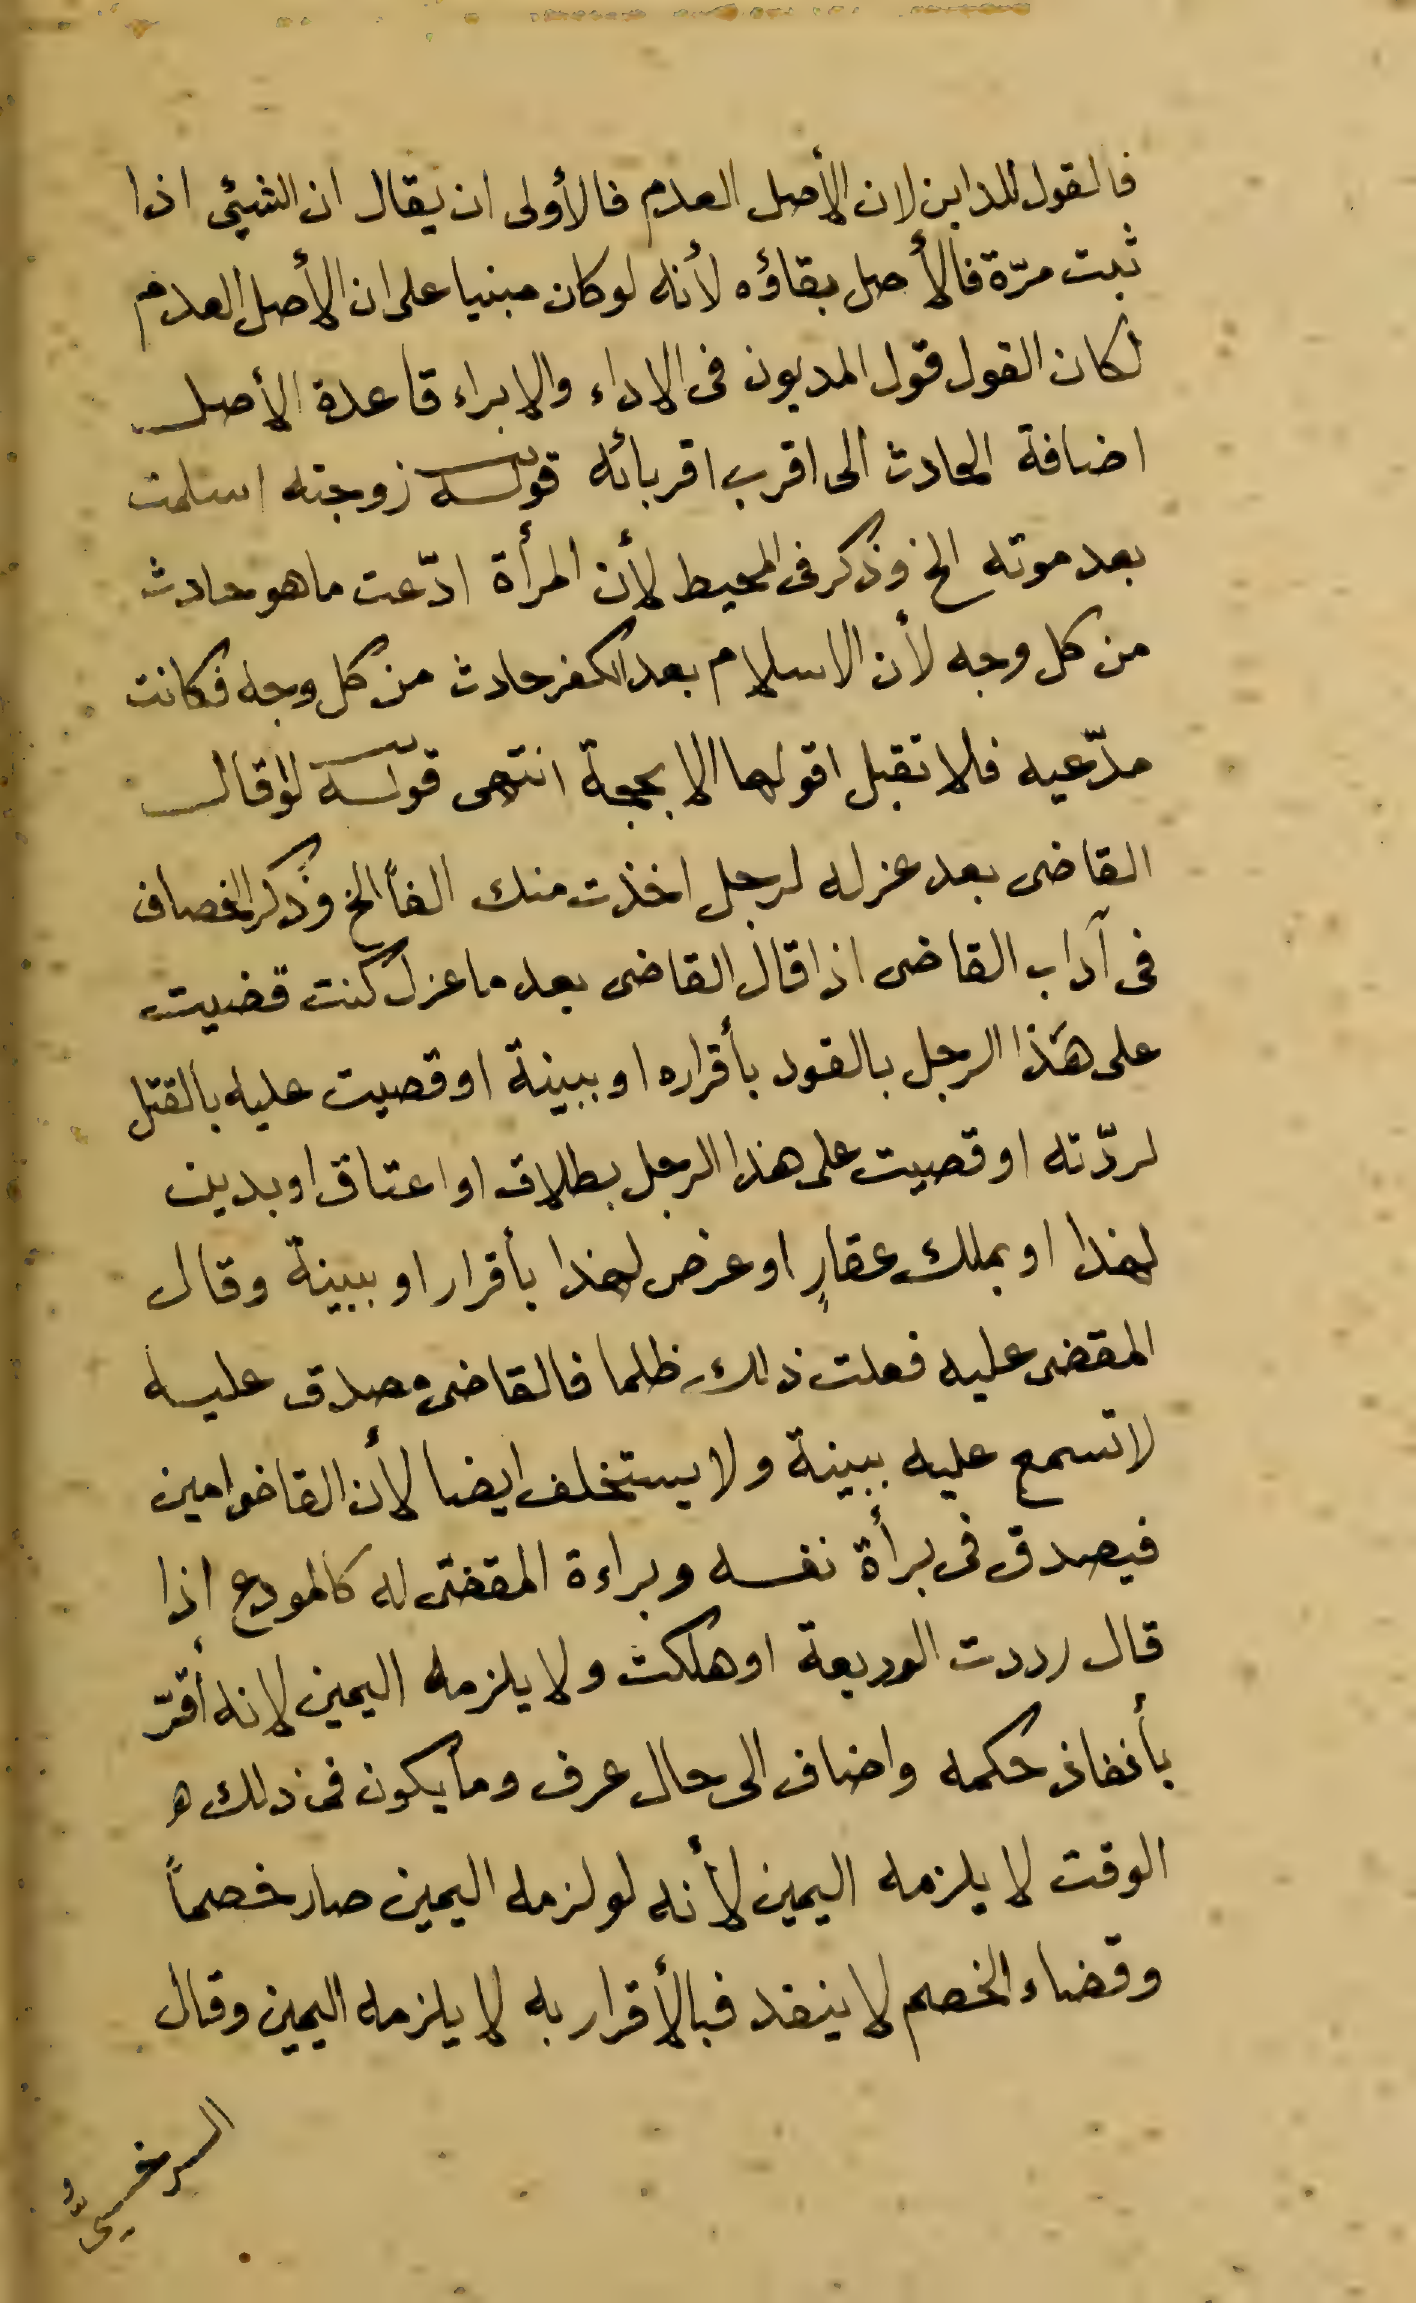 فالقول للداين لان الأصل العدم فالأولى ان يقال ان الشيئ اذا
ثبت مرّة فالأصل بقاؤه لأنه لو كان مبنيا على ان الأصل العدم
لكان القول قول المديون فى الاداء والابراء قاعدة الأصل
اضافة الحادث الى اقرب اقربائه قوله زوجته اسلمت
بعد موته الخ وذكر فى المحيط لأن المرأة ادّعت ما هو حادث
من كل وجه لأن الاسلام بعد الكفر حادث من كل وجه فكانت
مدّعيه فلا تقبل اقولها الا بحجة انتهى قوله لو قال
القاضى بعد عزله لرجل اخذت منك الفاً الخ وذكر الخصاف
فى آداب القاضى اذا قال القاضى بعد ما عزل كنت قضيت
على هَذا الرجل بالقود بأقراره او ببينة او قصيت عليه بالقتل
لردّته او قصيت على هذا الرجل بطلاق او اعتاق او بدين
لهذا او بملك عقارٍ او عرض لهذا بأقرار او ببينة وقال
المقضى عليه فعلت ذلك ظلما فالقاضى مصدق عليه
لا تسمع عليه ببينة ولا يستخلف ايضا لأن القاضى امين
فيصدق فى برأة نفسه وبراءة المقضى له كالمودع اذا
قال رددت الوديعة او هلكت ولا يلزمه اليمين لانه أقرّ
بأنفاذ حكمه واضاف الى حال عرف وما يكون فى ذلك ه
الوقت لا يلزمه اليمين لأنه لو لزمه اليمين صار خصماً
وقضاء الخصم لا ينفد فبالأقرار به لا يلزمه اليمين وقال
السرخسىّ